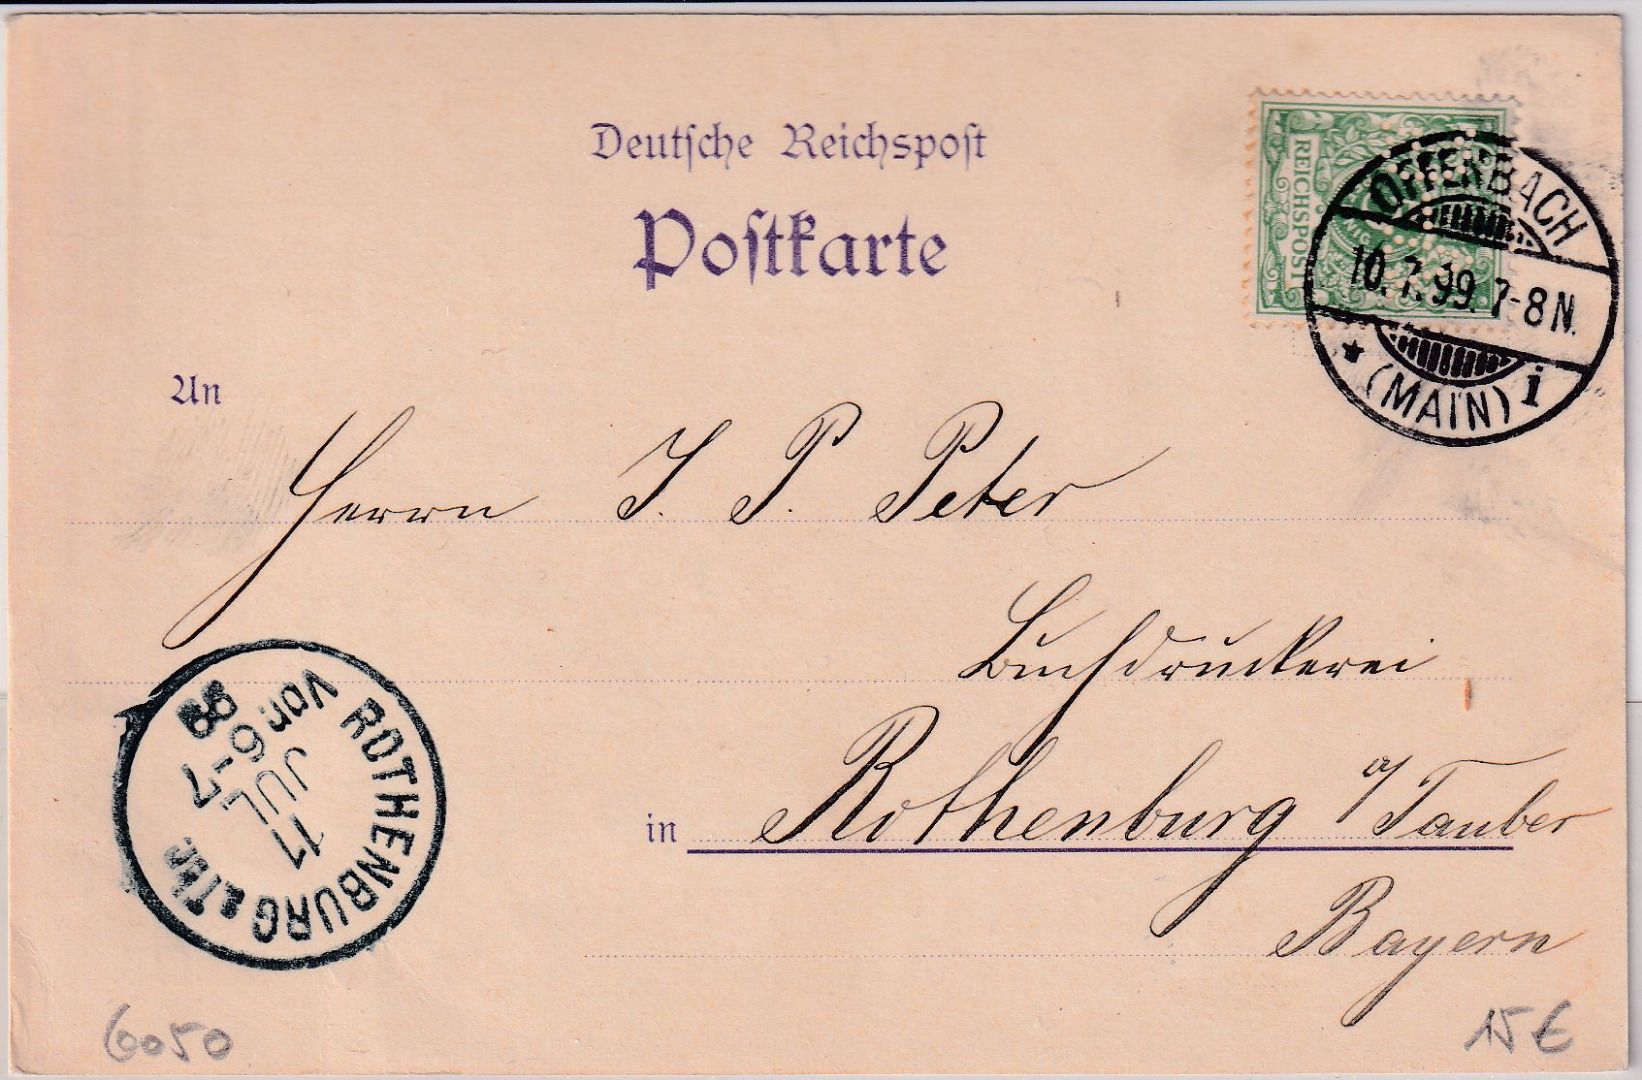 Deutsche Reichspost
Postkarte
REICHSPOST
OFFENBACH
10.7.99. 7-8 N.
* (MAIN) i
An
Herrn J. P. Peter
Buchdruckerei
in Rothenburg a/Tauber
Bayern
ROTHENBURG a.Tbr.
Vor. 6-7
11 JUL
99
6050
15€